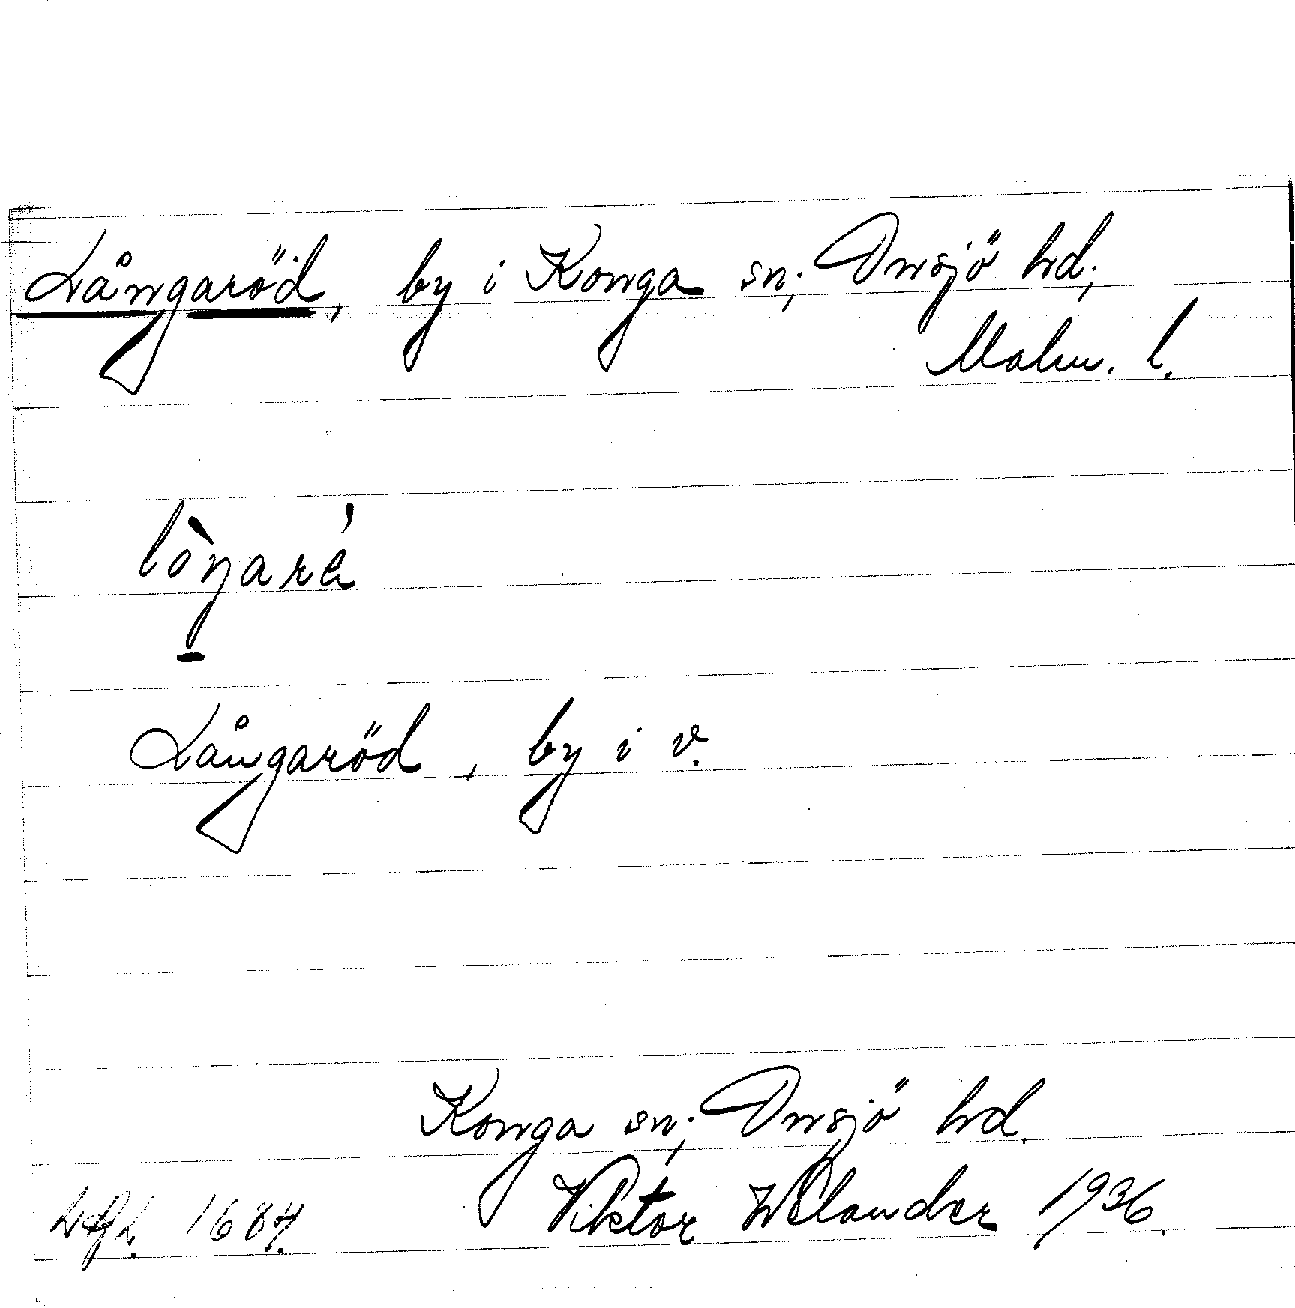 Långaröd, by i Konga sn; Onsjö hd;
Malm. l.
lòŋaré
Långaröd, by i v.
Konga sn; Onsjö hd.
Viktor Welander 1936.
1684.